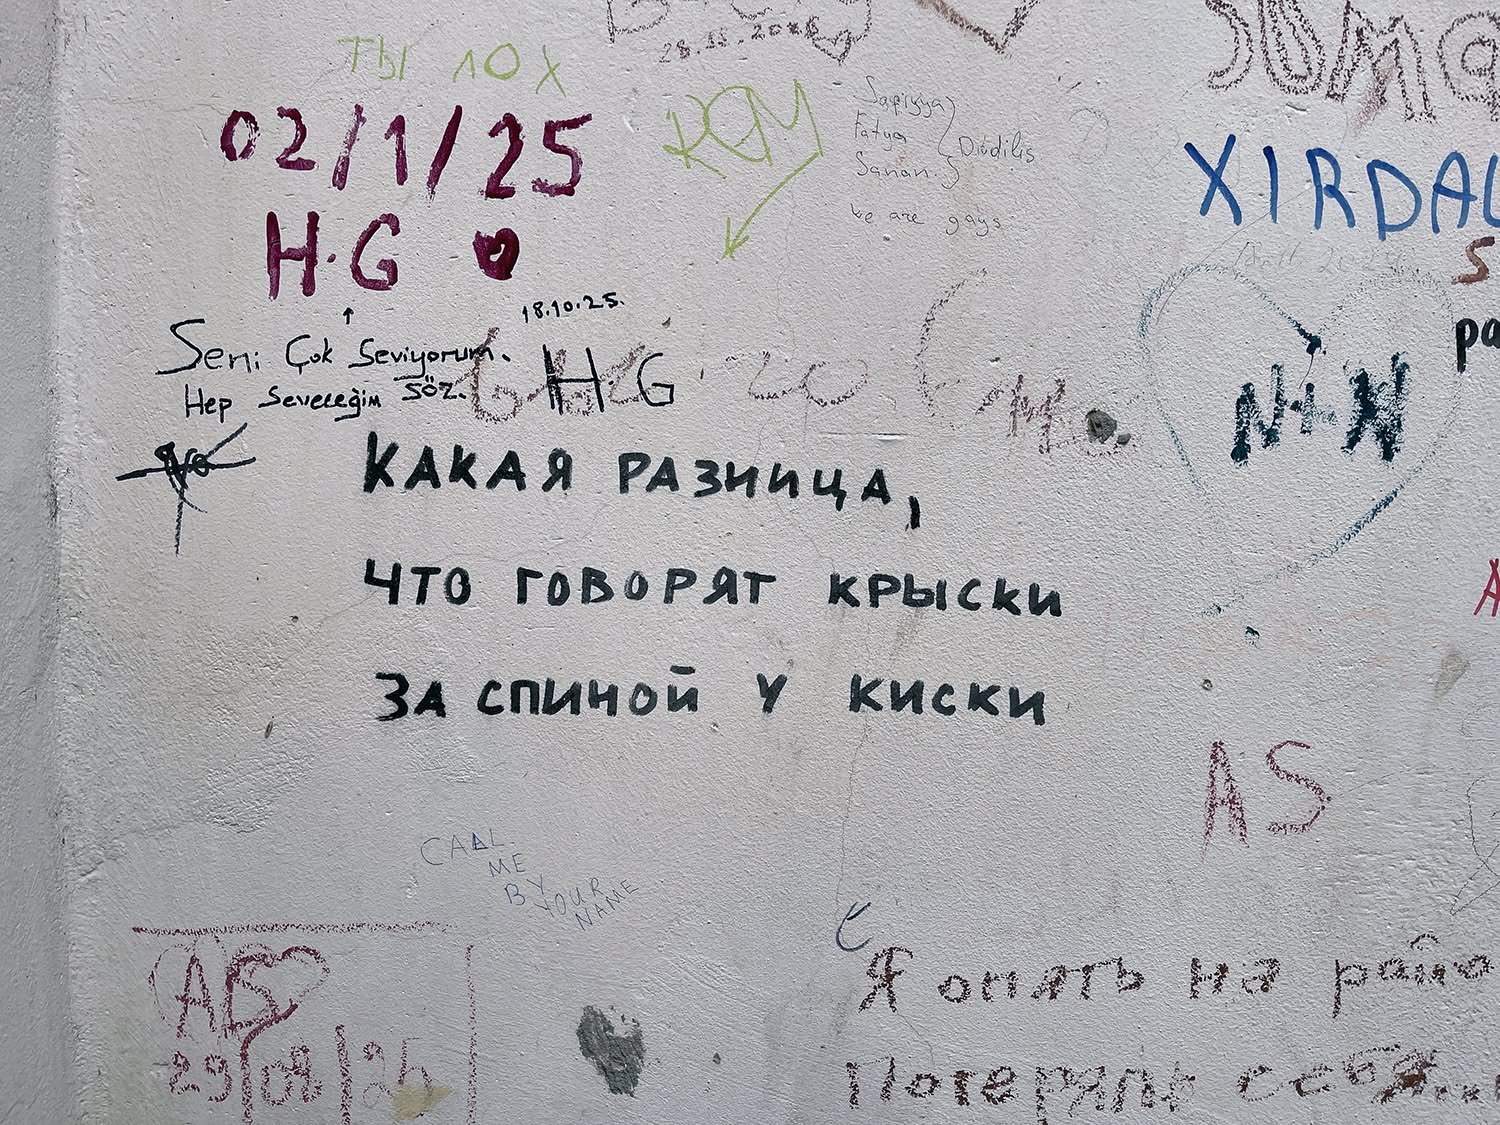 28.11.2025
ТЫ ЛОХ
02/1/25
H.G
Sapiyya
Fatya
Sanan.
Dividilis
we are gays
XIRDAL
Seni Çok Seviyorum.
Hep Seveceğim SÖZ.
18.10.25.
H.G
M.
N+N
КАКАЯ РАЗНИЦА,
ЧТО ГОВОРЯТ КРЫСКИ
ЗА СПИНОЙ У КИСКИ
AS
CALL
ME
BY
YOUR
NAME
AS
29/08/25
Я опять на райо
Потерять себя...